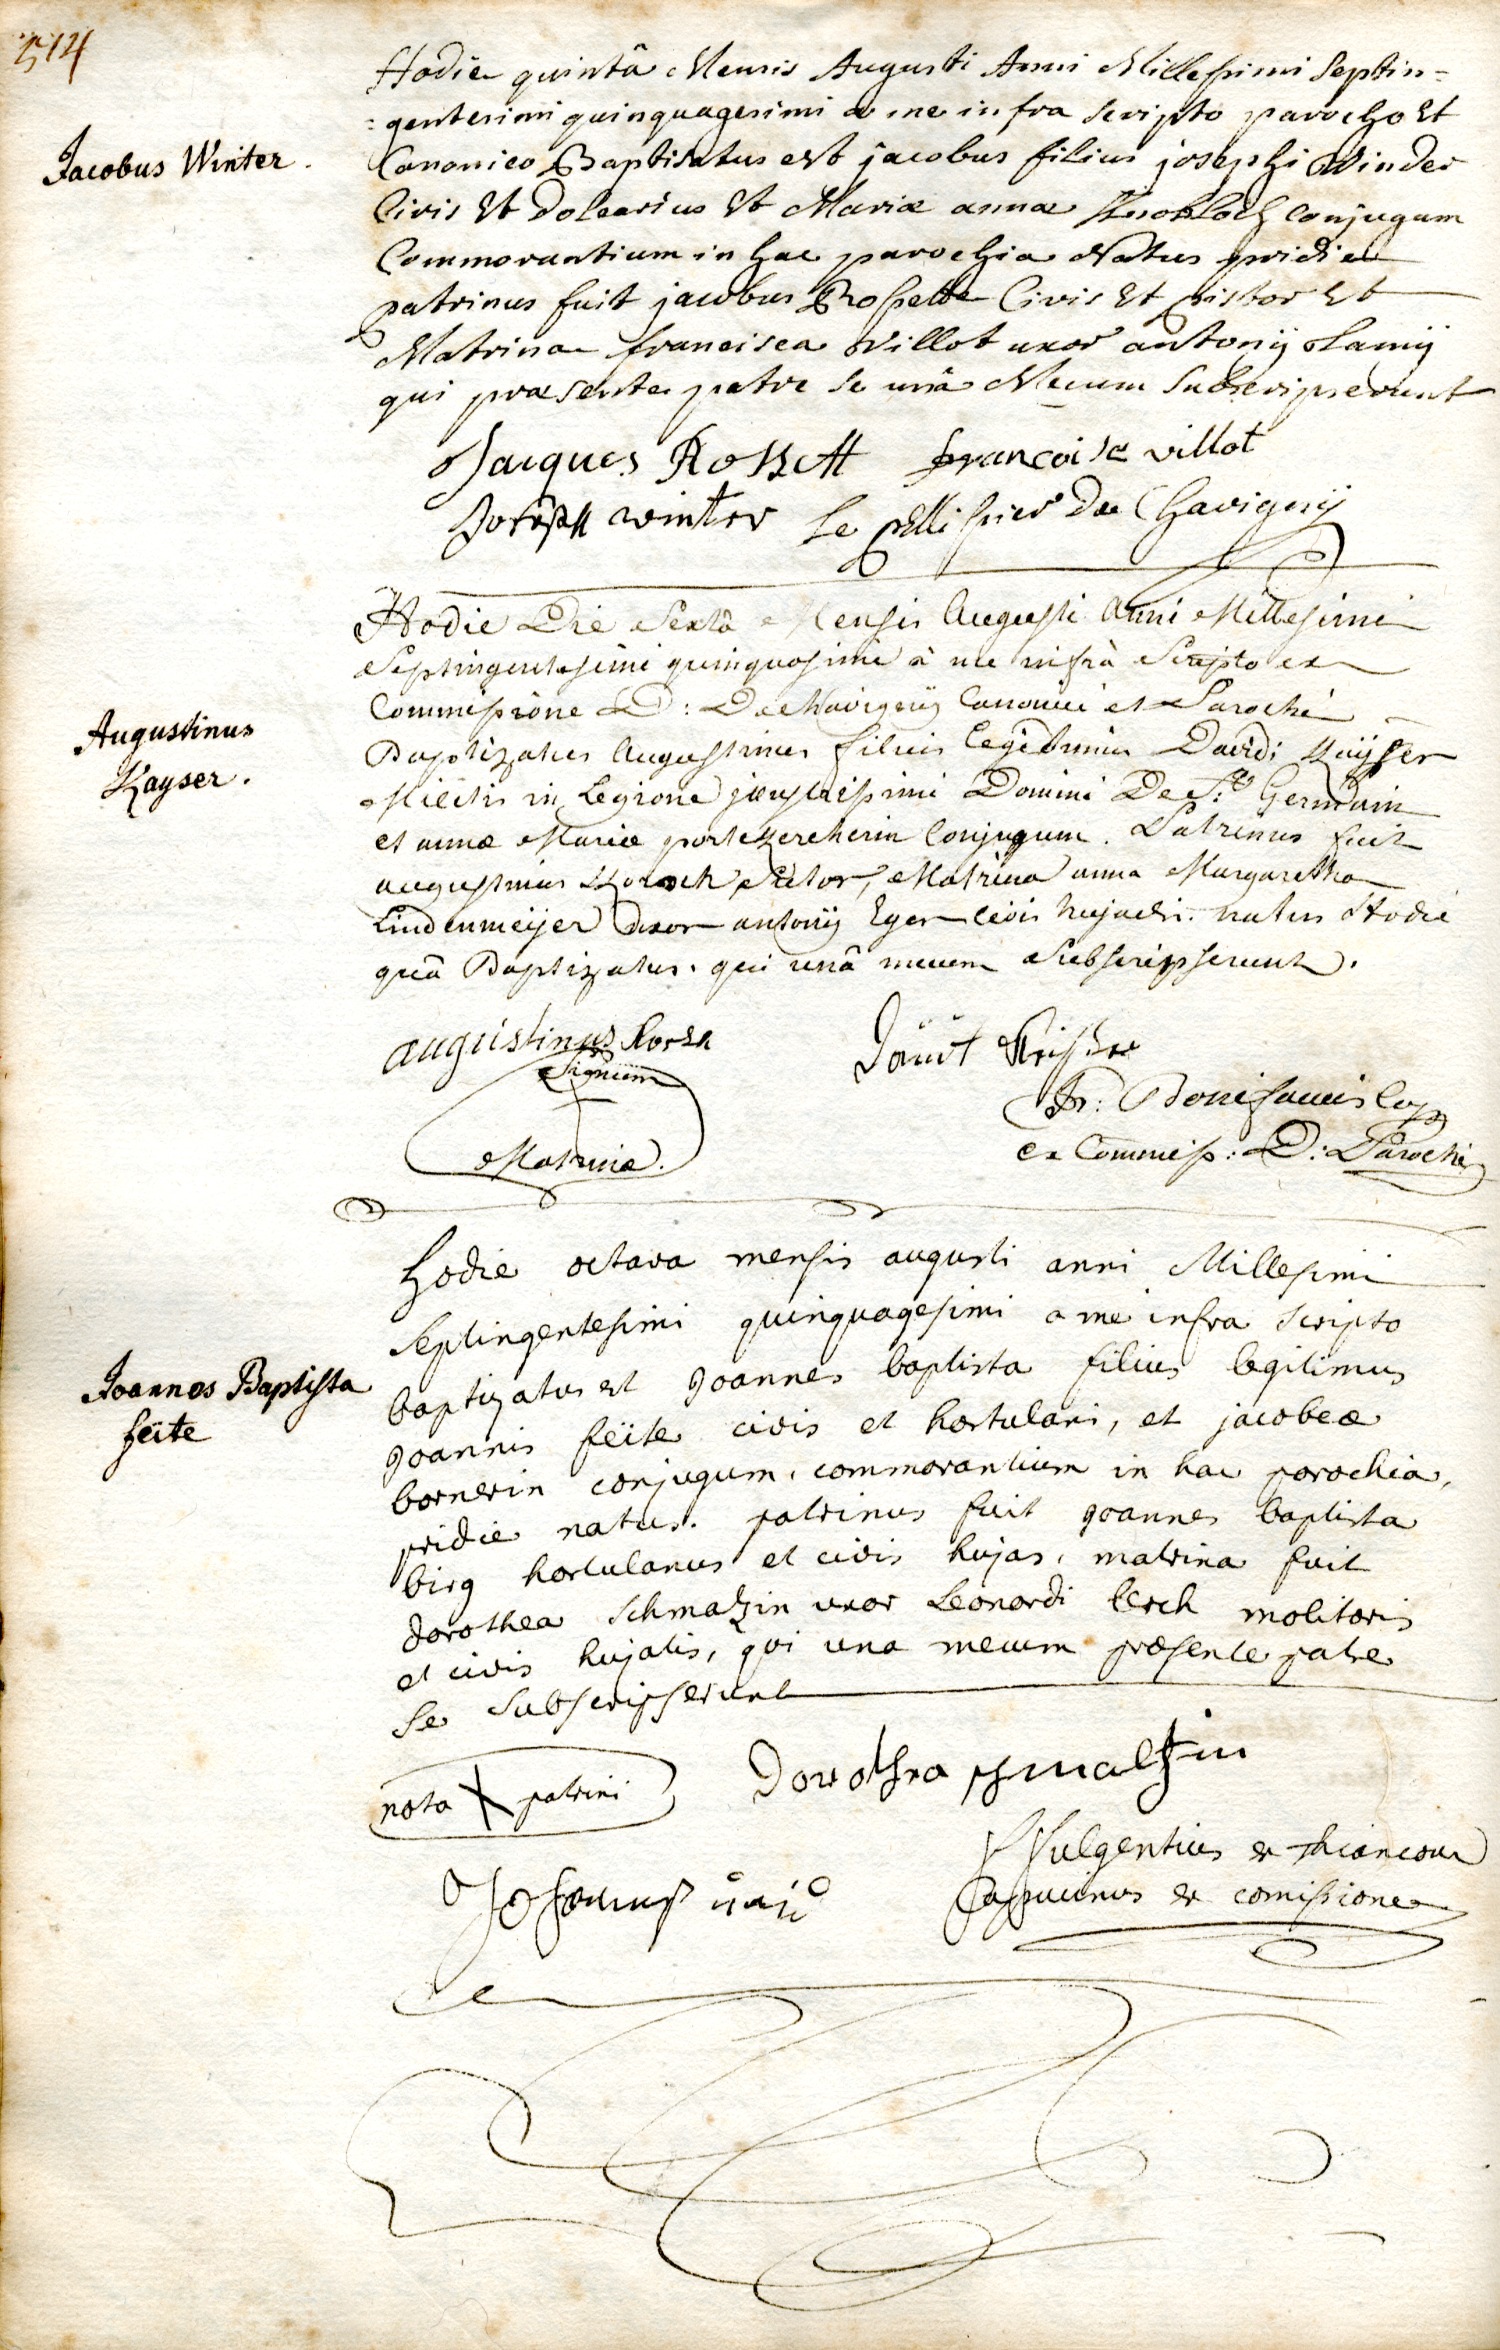 514
Jacobus Winter.
Hodie quintâ Mensis Augusti Anni Millesimi Septin=
=gentesimi quinquagesimi a me infra scripto parocho Et
Canonico Baptisatus est jacobus filius josephi Winder
Civis Et dolearius Et Mariæ annæ Knobloch Conjugum
Commorantium in hac parochia Natus pridie
patrinus fuit jacobus Rossette Civis Et pistor Et
Matrina francisca Villot uxor antonij Lamij
qui præsente patre se unâ Mecum Subscripserunt
Jacques Rossett francoise villot
Joseph winter Le pellissier De Chavignÿ
Augustinus
Kayser.
Hodie Die Sextâ Mensis Augusti Anni Millesimi
Septingentesimi quinquasimi à me infrà Scripto ex
Commissione D: De Chavignÿ Canonici et Parochi
Baptizatus Augustinus filius legitimus Davidi Kuÿser
Militis in Legione Domini De St. Germain
et annæ Mariæ Conjugum. Patrinus fuit
augustinus Sutor, Matrina anna Margaretha
Lindenmeijer uxor antonij Eger civis hujatis. natus Hodie
quâ Baptizatus. qui unâ mecum Subscripserunt.
augustinus
Signum
Matrinæ.
Davit
Fr: Bonifacius Cap
ex Commiss: D: Parochi
Joannes Baptista
feite
hodie octava mensis augusti anni Millesimi
Septingentesimi quinquagesimi a me infra scripto
baptizatus est Joannes baptista filius legitimus
Joannis feite civis et hortulani, et jacobeæ
bornerin conjugum, commorantium in hac parochia,
pridie natus. patrinus fuit joannes baptista
birg hortulanus et civis hujas, matrina fuit
dorothea schmalzin uxor Leonardi lerch molitoris
et civis hujatis, qui una mecum præsente patre
se subscripserunt
nota X patrini
Dorothea schmaltzin
F fulgentius ex
Capucinus ex comissione
Johannes